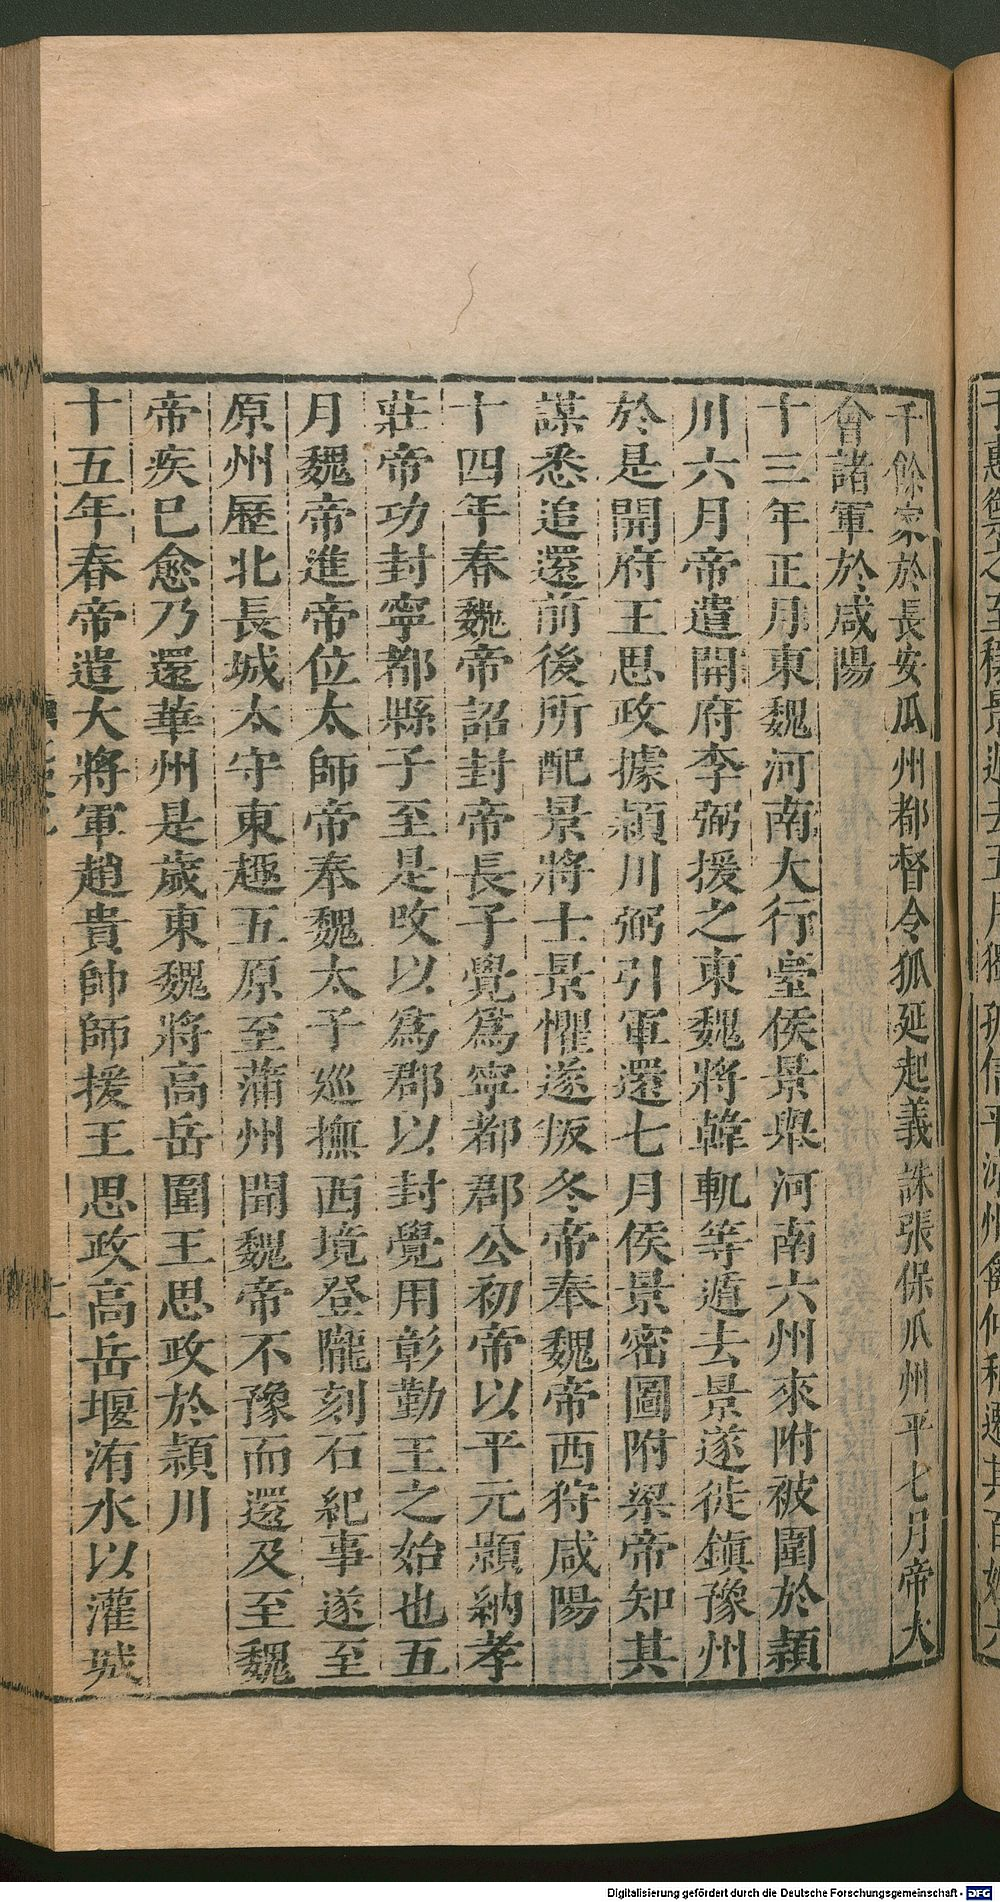 千餘家於長安瓜州都督令狐延起義誅張保瓜州平七月帝大
會諸軍於咸陽
十三年正月東魏河南大行臺侯景舉河南六州來附被圍於潁
川六月帝遣開府李弼援之東魏將韓軌等遁去景遂徙鎮豫州
於是開府王思政據潁川弼引軍還七月侯景密圖附梁帝知其
謀悉追還前後所配景將士景懼遂叛冬帝奉魏帝西狩咸陽
十四年春魏帝詔封帝長子覺爲寧都郡公初帝以平元顥納孝
莊帝功封寧都縣子至是改以爲郡以封覺用彰勤王之始也五
月魏帝進帝位太師帝奉魏太子巡撫西境登隴刻石紀事遂至
原州歷北長城太守東趣五原至蒲州聞魏帝不豫而還及至魏
帝疾已愈乃還華州是歲東魏將高岳圍王思政於潁川
十五年春帝遣大將軍趙貴帥師援王思政高岳堰洧水以灌城
Digitalisierung gefördert durch die Deutsche Forschungsgemeinschaft - DFG